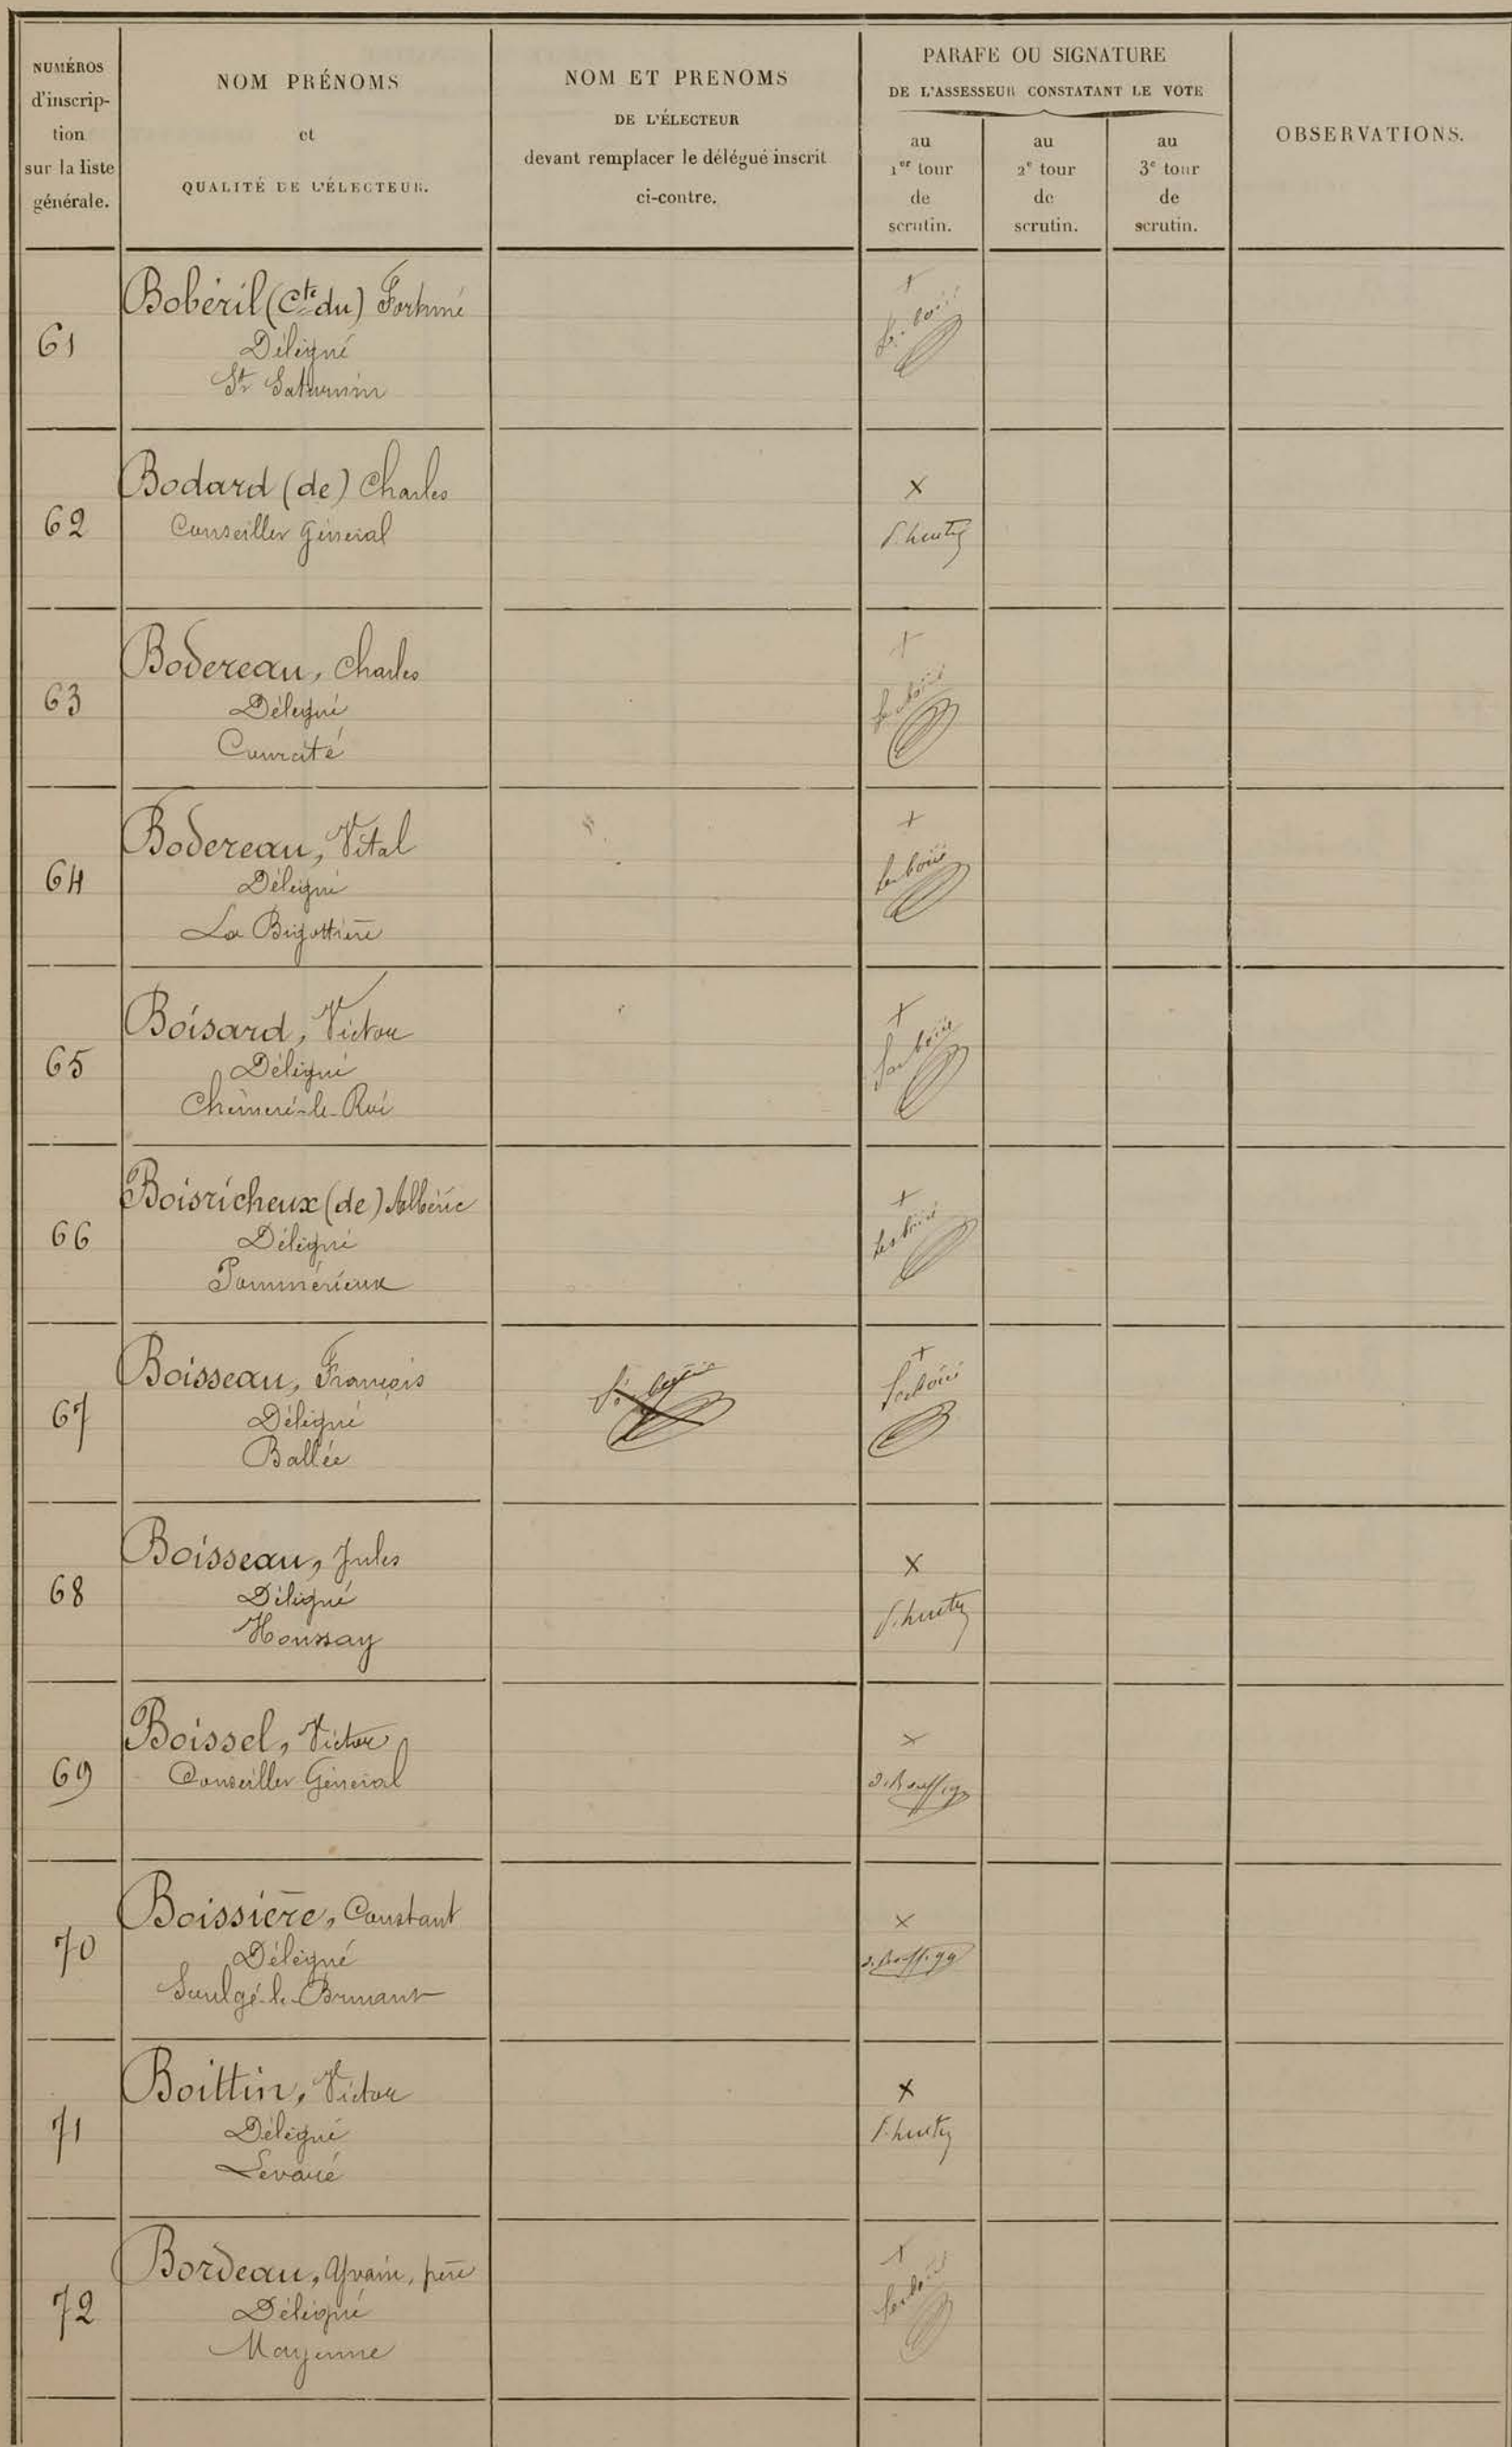 NUMÉROS
d'inscrip-
tion
sur la liste
générale.
NOM PRÉNOMS
et
QUALITÉ DE L'ÉLECTEUR.
NOM ET PRENOMS
DE L'ÉLECTEUR
devant remplacer le délégué inscrit
ci-contre.
PARAFE OU SIGNATURE
DE L'ASSESSEUR CONSTATANT LE VOTE
au
1er tour
de
scrutin.
au
2e tour
de
scrutin.
au
3e tour
de
scrutin.
OBSERVATIONS.
61
Bobéril (Cte du) Fortuné
Délégué
St Saturnin
+
62
Bodard (de) Charles
Conseiller Général
x
63
Bodereau, Charles
Délégué
Courcité
+
64
Bodereau, Vital
Délégué
La Bigottière
+
65
Boisard, Victor
Délégué
Chémeré-le-Roi
+
66
Boisricheux (de) Albéric
Délégué
Pommérieux
+
67
Boisseau, François
Délégué
Ballée
+
68
Boisseau, Jules
Délégué
Houssay
x
69
Boissel, Victor
Conseiller Général
x
70
Boissière, Constant
Délégué
Saulgé-le-Bruant
x
71
Boittin, Victor
Délégué
Levaré
x
72
Bordeau, Yvain, père
Délégué
Mayenne
+